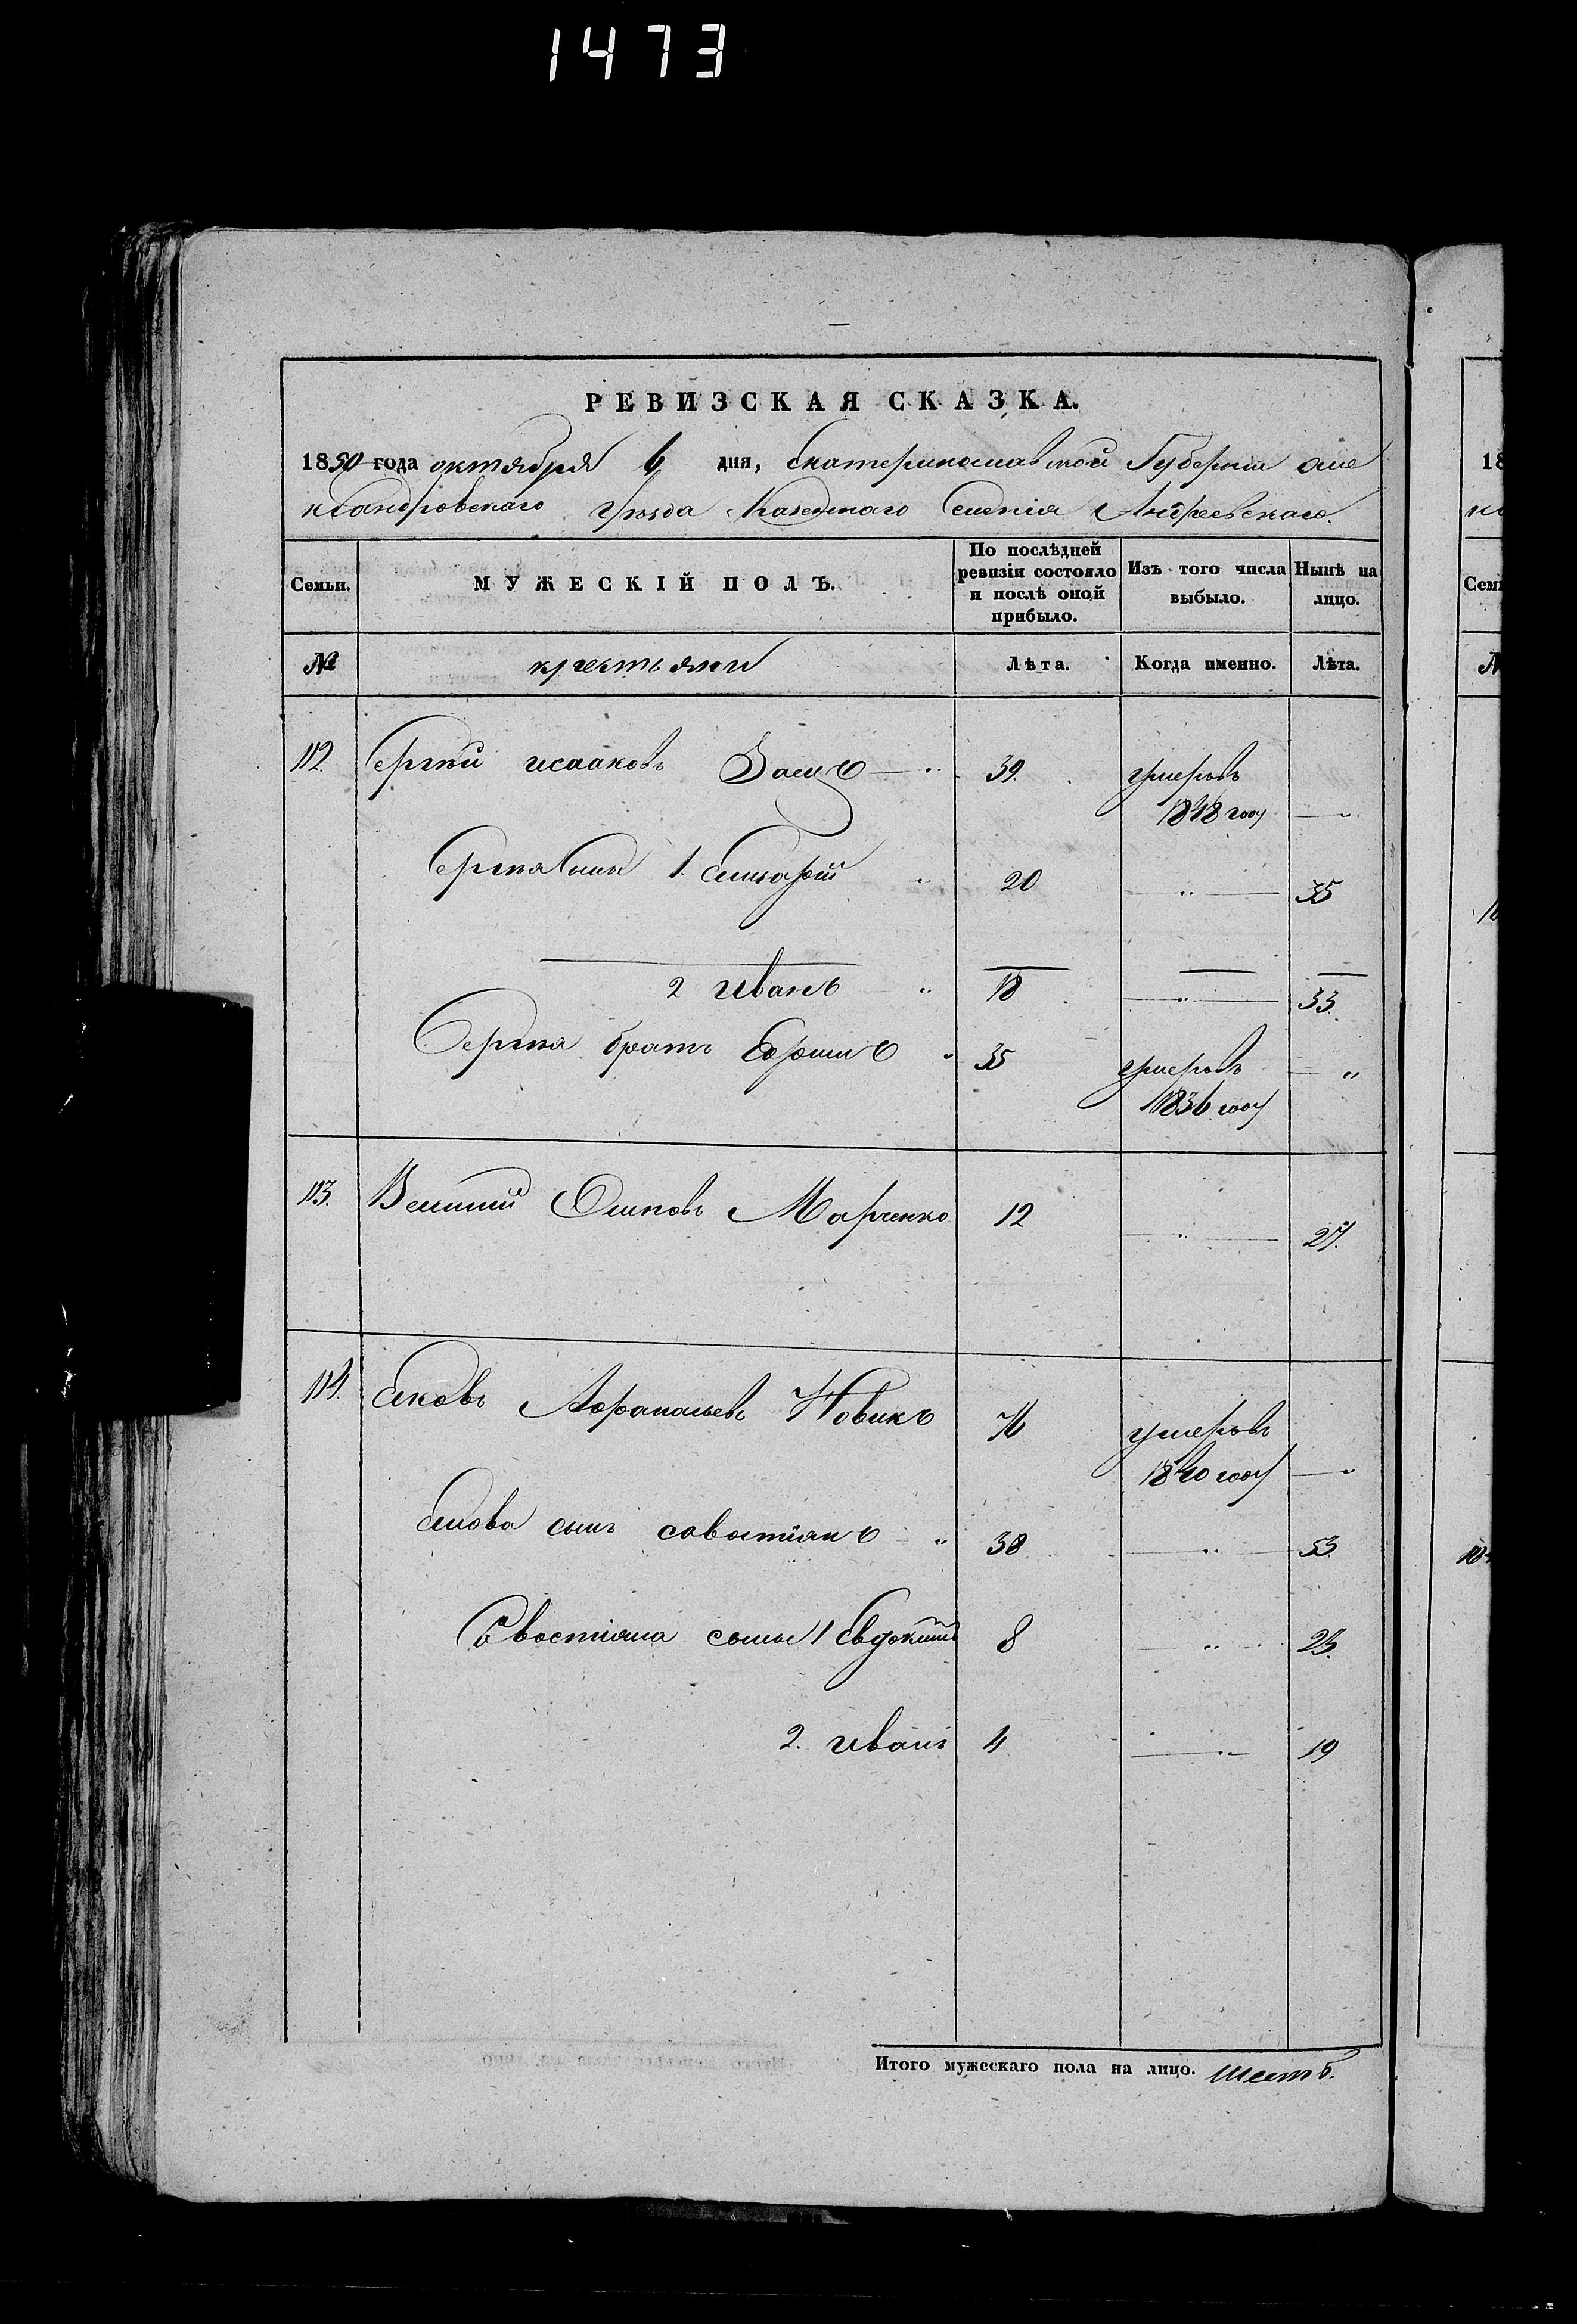 1473
РЕВИЗСКАЯ СКАЗКА.
1850 года октября 6 дня, Екатеринославской Губернии Але
ксандровскаго Уѣзда Казеннаго Селенія Андреевскаго.
Семьи. МУЖЕСКІЙ ПОЛЪ. По послѣдней ревизіи состояло и послѣ оной прибыло. Изъ того числа выбыло. Нынѣ на лицо.
№ крестьяни Лѣта. Когда именно. Лѣта.
112. Сергѣй Исааковъ 39. умеръ въ
1848 году
Сергѣя сыны 1. 20 " 35
2 Иванъ " 18 " 33.
Сергѣя братъ " 35 умеръ въ "
1836 году
113. Осиповъ Марченко 12 " 27.
114. Яковъ Афанасьевъ Новикъ 76 умеръ въ
1840 году
Якова сынъ Савостіянъ " 38 " 53.
Савостіяна сыны 1 Евдокимъ 8 " 23.
2. Иванъ 4 " 19
Итого мужескаго пола на лицо. шесть.
18
Сем